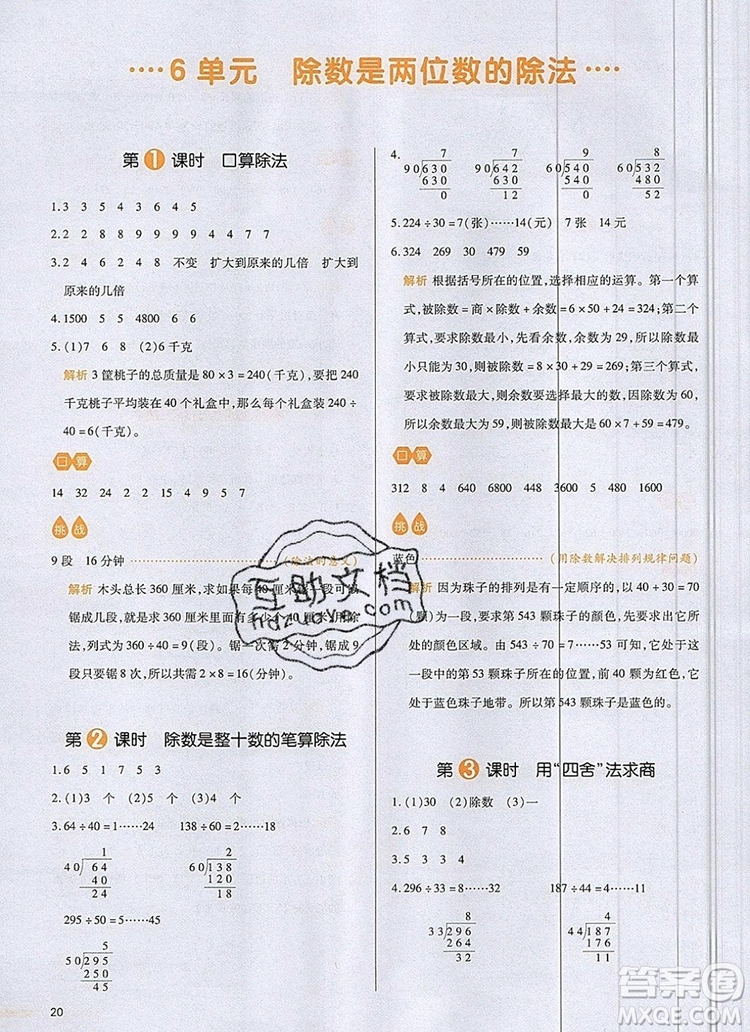 ····6 单元 除数是两位数的除法····
第1课时 口算除法
1.3 3 5 4 3 6 4 5
2.2 2 8 8 9 9 9 9 4 4 8 8
3.2 4 6 2 4 8 不变 扩大到原来的几倍 扩大到
原来的几倍
4.1500 5 5 4800 6 6
5.(1)7 6 8 (2)6 千克
解析 3 筐桃子的总质量是 80×3=240(千克)。要把 240
千克桃子平均装在 40 个礼盒中,那么每个礼盒装 240÷
40=6(千克)。
口算
14 32 24 2 2 15 4 9 5 7
挑战
9 段 16 分钟 (除法的意义)
解析 木头总长 360 厘米,求如果每 40 厘米一段可以
锯成几段,就是求 360 厘米里面有多少个 40 厘米,用除
法,列式为 360÷40=9(段)。锯一次需 2 分钟,锯成 9
段需锯 8 次,所以共需 2×8=16(分钟)。
第2课时 除数是整十数的笔算除法
1.6 5 1 7 5 3
2.(1)3 个 (2)5 个 (3)4 个
3.64÷40=1……24 138÷60=2……18
1 2
40 64 60 138
40 120
24 18
295÷50=5……45
5
50 295
250
45
20
4. 7 7 9 8
90 630 90 642 60 540 60 532
630 630 540 480
0 12 0 52
5.224÷30=7(张)……14(元) 7 张 14 元
6.324 269 30 479 59
解析 根据括号所在的位置,选择相应的运算。第一个算
式,被除数=商×除数+余数=6×50+24=324;第二个
算式,要求除数最小,先看余数,余数为 29,所以除数最
小只能为 30,被除数=8×30+29=269;第三个算式,
要求被除数最大,则余数要选择最大的数,因除数为 60,
余数最大为 59,所以被除数最大是 60×7+59=479。
口算
312 8 4 640 6800 448 5 500 480 1600
挑战
蓝色 (用除数解决排列规律问题)
解析 因为珠子的排列是有一定顺序的,以 40+30=70
(颗)为一段。要求第 543 颗珠子的颜色,先确定这颗珠子
的颜色区域。由 543÷70=7……53 可以知道,它处于这
一段中的第 53 颗珠子所在的位置,前 40 颗为红色,它处
于蓝色珠子地带。所以第 543 颗珠子是蓝色的。
第3课时 用“四舍”法求商
1.(1)30 (2)除数 (3)一
2.6 7 8
3.5 3 4 4
4.296÷33=8……32 187÷44=4……11
8 4
33 296 44 187
264 176
32 11
互助文档
hdzhayo.com
答案圈
MXQE.COM